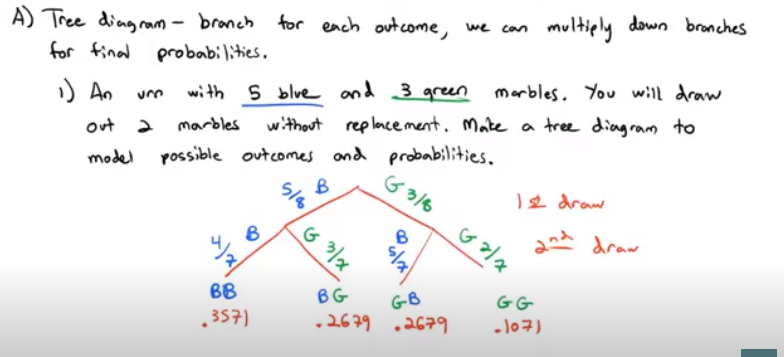 A) Tree diagram – branch for each outcome, we can multiply down branches
for final probabilities.
1) An urn with 5 blue and 3 green marbles. You will draw
out 2 marbles without replacement. Make a tree diagram to
model possible outcomes and probabilities.
5/8 B G 3/8 1st draw
4/7 B G 3/7 B 5/7 G 2/7 2nd draw
BB BG GB GG
.3571 .2679 .2679 .1071